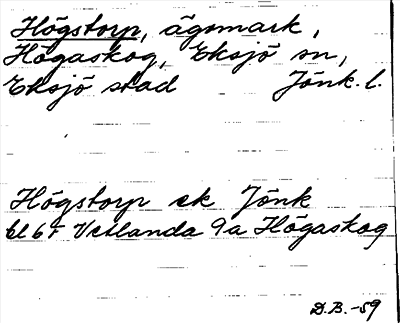 Högstorp, ägomark,
Högaskog, Eksjö sn,
Eksjö stad Jönk. l.
Högstorp ek Jönk
bl 6F Vetlanda 9a Högaskog
D.B. -59